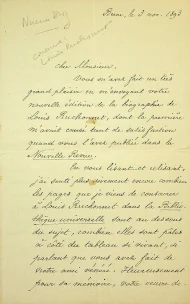 Berne, le 3 nov. 1893
Cher Monsieur,
Vous m'avez fait un très
grand plaisir en m'envoyant votre
nouvelle édition de la biographie de
Louis Ruchonnet, dont la première
m'avait causé tant de satisfaction
quand vous l'avez publiée dans la
Nouvelle Revue.
En vous lisant et relisant,
j'ai senti plus vivement encore combien
les pages que je viens de consacrer
à Louis Ruchonnet dans la Biblio-
thèque universelle sont au dessous
du sujet, combien elles sont pâles
à côté du tableau si vivant, si
parlant que vous avez fait de
votre ami vénéré. Heureusement
pour sa mémoire, votre œuvre de